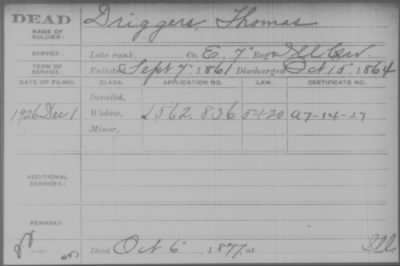 DEAD
NAME OF SOLDIER: Driggers, Thomas
SERVICE: Late rank, Co. E, 7" Reg't Ill. Cav
TERM OF SERVICE: Enlisted Sept 7, 1861 Discharged Oct 15, 1864
DATE OF FILING. CLASS. APPLICATION NO. LAW. CERTIFICATE NO.
Invalid,
1926 Dec 1 Widow, 1562.836 5-1-20 A7-14-27
Minor,
ADDITIONAL SERVICES:
REMARKS:
Died Oct 6, 1877, at Ill